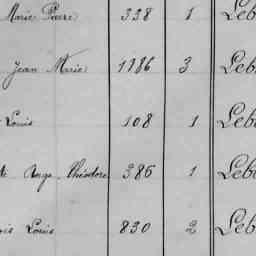 Marie Pierre 338 1 Leb
Jean Marie 1186 3 Leb
Louis 108 1 Leb
Ange Théodore 386 1 Leb
Louis 830 2 Leb